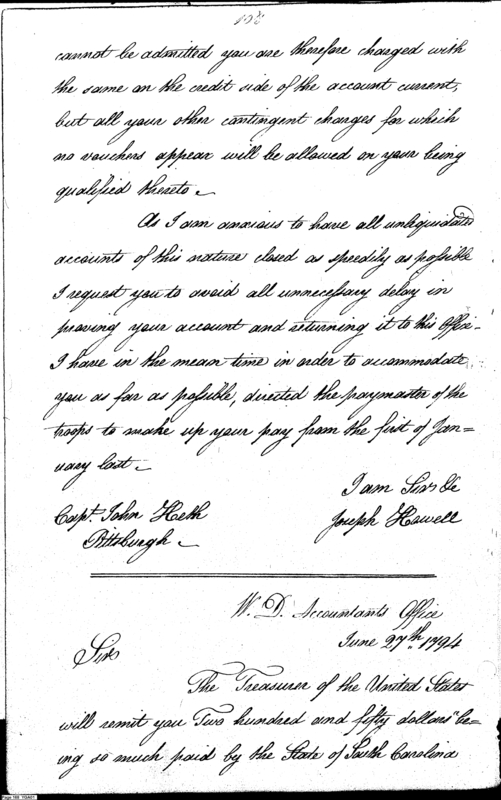 cannot be admitted you are therefore charged with
the same on the credit side of the account current,
but all your other contingent charges for which
no vouchers appear will be allowed on your being
qualified thereto.
As I am anxious to have all unliquidated
accounts of this nature closed as speedily as possible
I request you to avoid all unnecessary delay in
proving your account and returning it to this Office.
I have in the mean time in order to accommodate
you as far as possible, directed the paymaster of the
troops to make up your pay from the first of Jan=
uary last.
I am Sir &c
Capt. John Heth
Joseph Howell
Pittsburgh.
W. D. Accountants Office
June 27th 1794
Sir
The Treasurer of the United States
will remit you Two hundred and fifty dollars be=
ing so much paid by the State of South Carolina